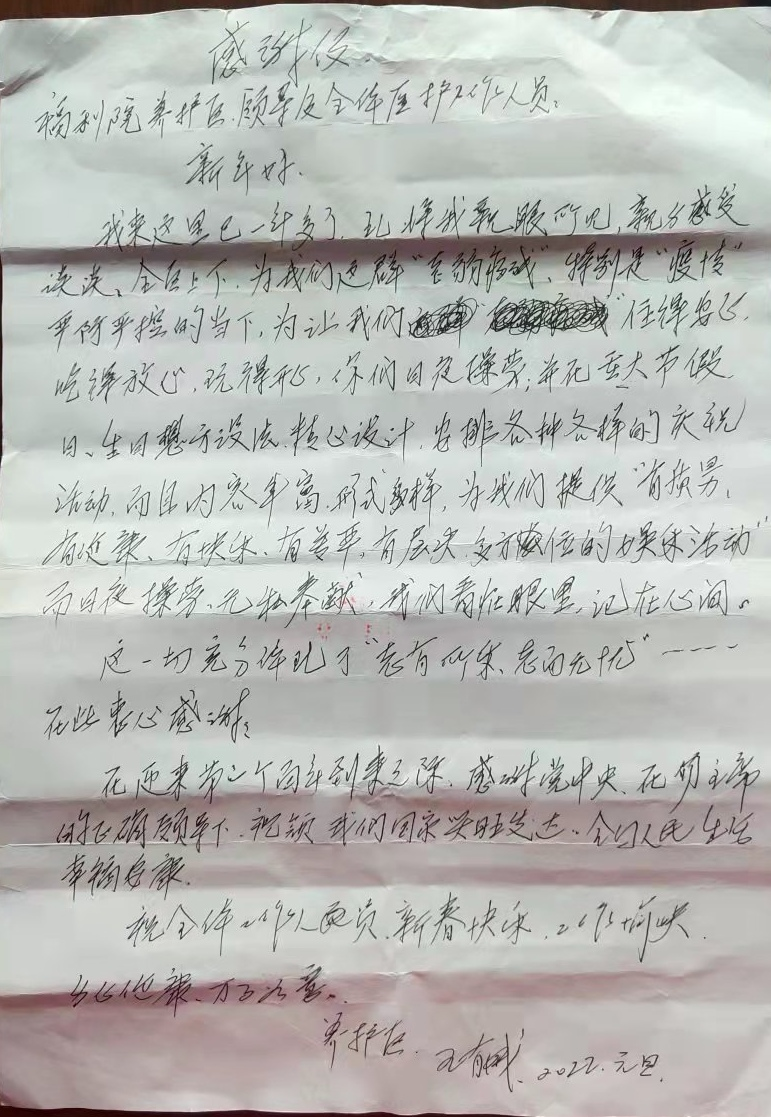 感谢信
福利院养护区、领导及全体医护工作人员:
新年好.
我来这里已一年多了、现将我亲眼所见,亲身感受
谈谈、全区上下,为我们这群"老弱病残",特别是"疫情"
严防严控的当下,为让我们 住得安心,
吃得放心,玩得开心,你们日夜操劳,并在重大节假
日、生日想方设法、精心设计,安排各种各样的庆祝
活动,而且内容丰富、形式多样,为我们提供"有质量、
有健康、有快乐、有尊严、有层次、多方位的娱乐活动"
而日夜操劳、无私奉献,我们看在眼里,记在心间。
这一切充分体现了"老有所乐、老而无忧"----
在此衷心感谢:
在迎来第二个百年到来之际、感谢党中央、在 主席
的正确领导下、祝愿我们国家兴旺发达、全国人民生活
幸福安康.
祝全体工作人员、新春快乐、工作愉快.
身心健康、万事如意.
养护区. 王有 、2022.元旦.